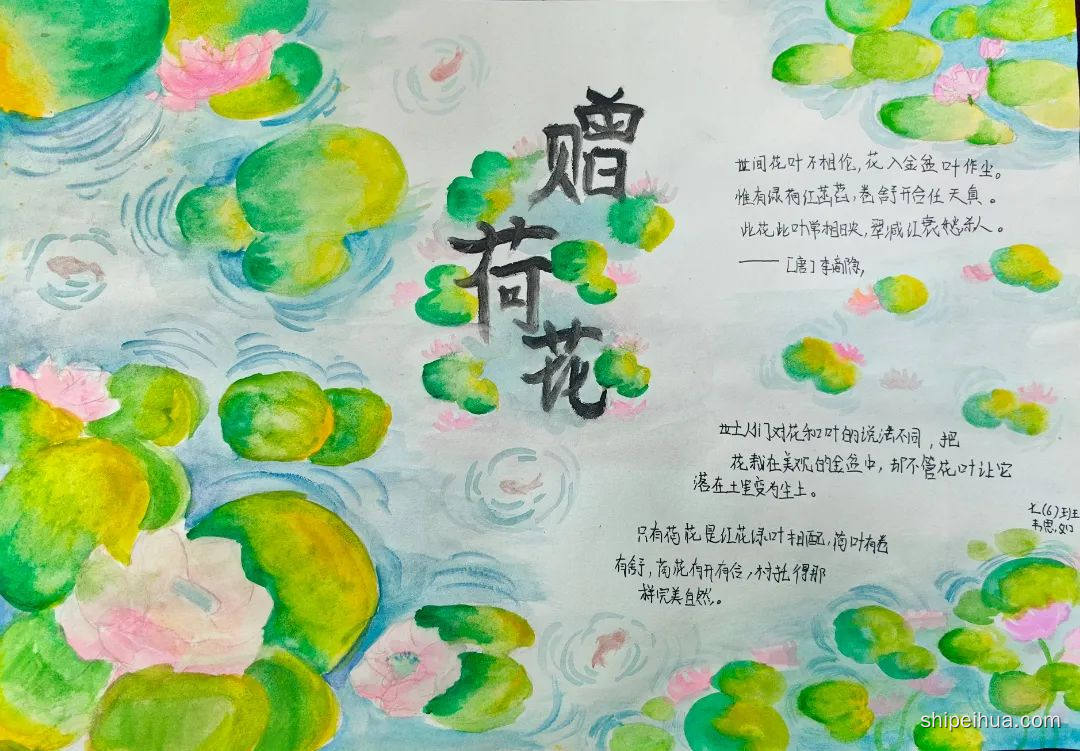 赠
荷
花
世间花叶不相伦,花入金盆叶作尘。
惟有绿荷红菡萏,卷舒开合任天真。
此花此叶常相映,翠减红衰愁杀人。
——[唐]李商隐,
世上人们对花和叶的说法不同,把
花栽在美观的金盆中,却不管花叶让它
落在土里变为尘土。
只有荷花是红花绿叶相配,荷叶有卷
有舒,荷花有开有合,衬托得那
样完美自然。
(6)班
shipeihua.com